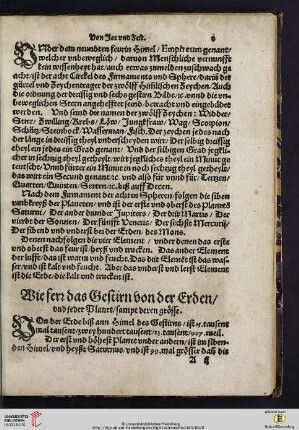 Von Jar und Fest. 6
Über dem neundten feurin Himel / Empireum genant /
welcher unbeweglich / darvon Menschliche vernunfft
kein wissenheyt hat / auch etwas zumelden zu schwach ge
acht / ist der acht Circkel des Firmaments und Sphere / darin der
gürtel und Zeychentrager der zwölff himlischen Zeychen. Auch
die ordnung der dreissig und sechs gesetzten Bilde / ⁊c. unnd die un-
beweglichen Stern angehefftet seind / betracht und eingebildet
werden. Und seind die namen der zwölff Zeychen: Widder /
Stier / Zwilling / Krebs / Löw / Jungkfraw / Wag / Scorpion /
Schütz / Steynbock / Wasserman / Fisch. Der zeychen jedes nach
der lenge in dreissig theyl underscheyden wirt / Der selbig dreissig
theyl ein jedes ein Grad genant. Und der selbigen Grad jegklich-
er in sechtzig theyl getheylt / wirt jegkliches theyl ein Minut ge
teutscht / Unnd fürter ein Minut in noch sechtzig theyl getheylt /
das wirt ein Secund genant ⁊c. und also für unnd für / Tertzen /
Quarten / Quinten / Sexten / ⁊c. biß auff Decen.
Nach dem Firmament der achten Spheren / folgen die siben
umbkreyß der Planeten / und ist der erst und oberst des Planetē
Saturni / Der ander darunder Jupiters / Der drit Martis / Der
vierdt der Sonnen / Der fünfft Veneris / Der sechßt Mercurij /
Der sibend und underst bei der Erden / des Mons.
Denen nach folgen die vier Element / under denen das erste
und oberst das feur ist / heyß und trucken. Das ander Element
der lufft / das ist warm und feucht. Das drit Elemēt ist das was-
ser / und ist kalt und feucht. Aber das underst und letst Element
ist die Erde / die kalt und trucken ist.
Wie ferr das Gestirn von der Erden /
und jeder Planet / sampt deren grösse.
Von der Erde biß ann Himel des Gestirns / ist
mal tausent / zwey hundert tausent / meil.
Der erst und höhest Planet under andern / ist im siben-
den Himel / und heyßt Saturnus / und ist 90. mal grösser dañ die
A
UNIVERSITÄTS-
BIBLIOTHEK
HEIDELBERG
© Universitätsbibliothek Heidelberg